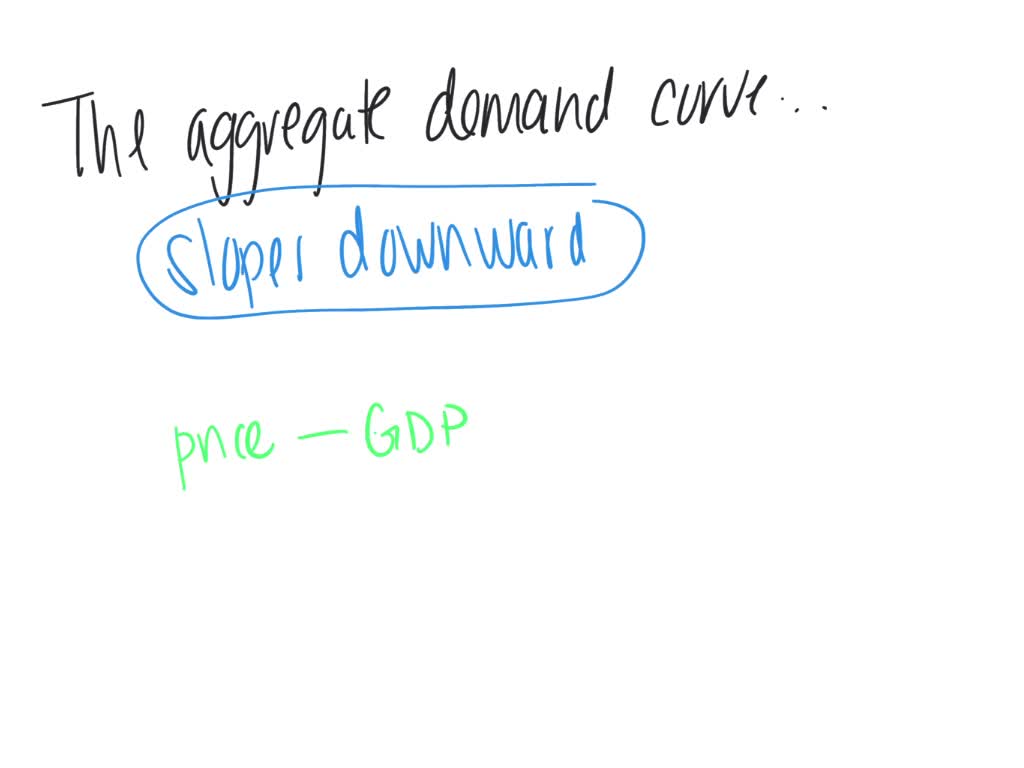 The aggregate demand curve...
slopes downward
price - GDP